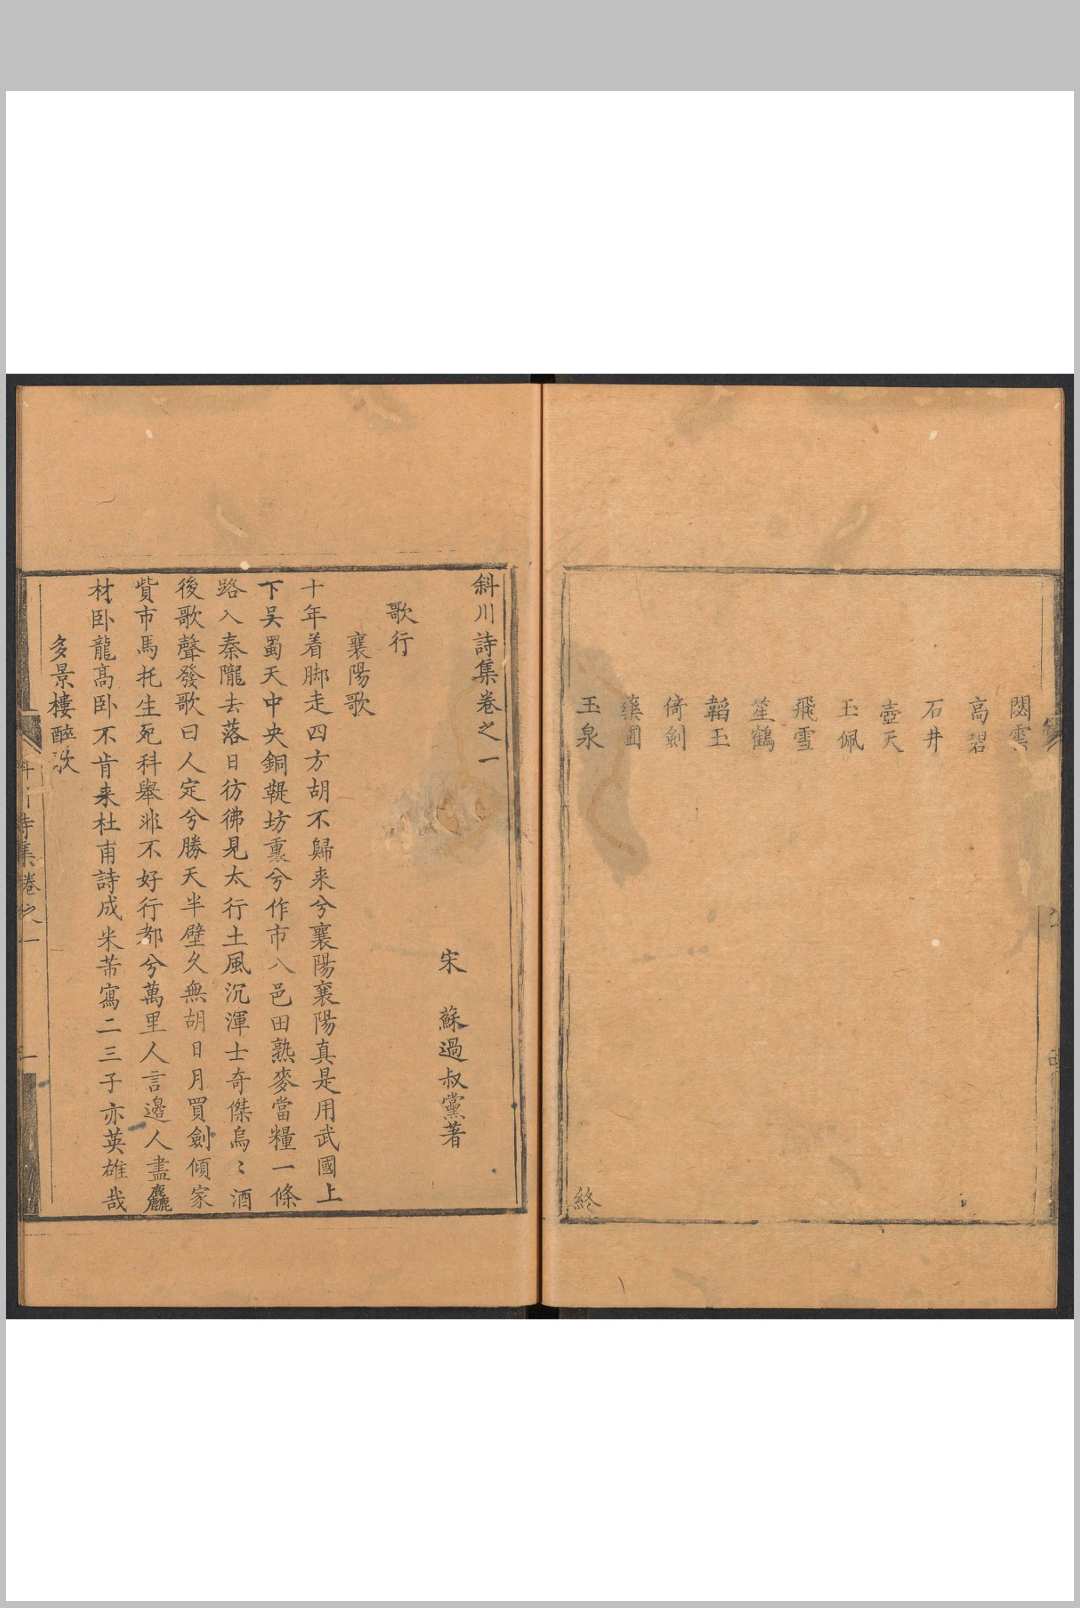 閟雲
高碧
石井
壺天
玉佩
飛雪
笙鶴
韜玉
倚劍
藥圃
玉泉
終
斜川詩集卷之一
宋 蘇過叔黨著
歌行
襄陽歌
十年着脚走四方胡不歸来兮襄陽襄陽真是用武國上
下吴蜀天中央銅鞮坊裏兮作市八邑田熟麥當糧一條
路入秦隴去落日彷彿見太行土風沉渾士奇傑烏〻酒
後歌聲發歌曰人定兮勝天半壁久無胡日月買劍傾家
貲市馬托生死科舉非不好行都兮萬里人言邊人盡麤
材卧龍髙卧不肯来杜甫詩成米芾寫二三子亦英雄哉
多景樓醉
斜川詩集卷之一
一